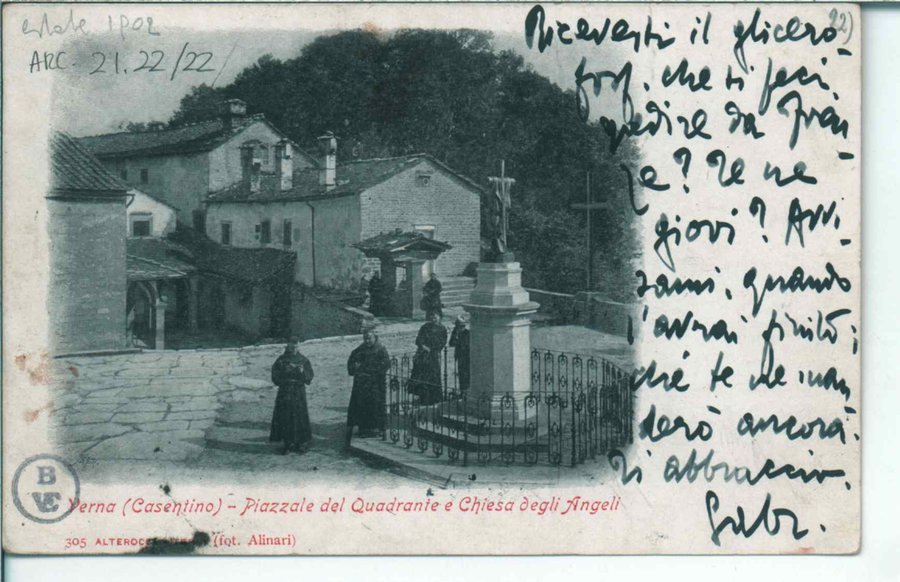 estate 1902
ARC. 21.22/22
22)
Ricevesti il glicero-
fosf. che ti feci
spedire da Fran-
ze? Te ne
giovi? Avvi-
sami, quando
l'avrai finito;
ché te ne man-
derò ancora.
Ti abbraccio
Gabr.
BVE
Verna (Casentino) - Piazzale del Quadrante e Chiesa degli Angeli
305 ALTEROCC (fot. Alinari)